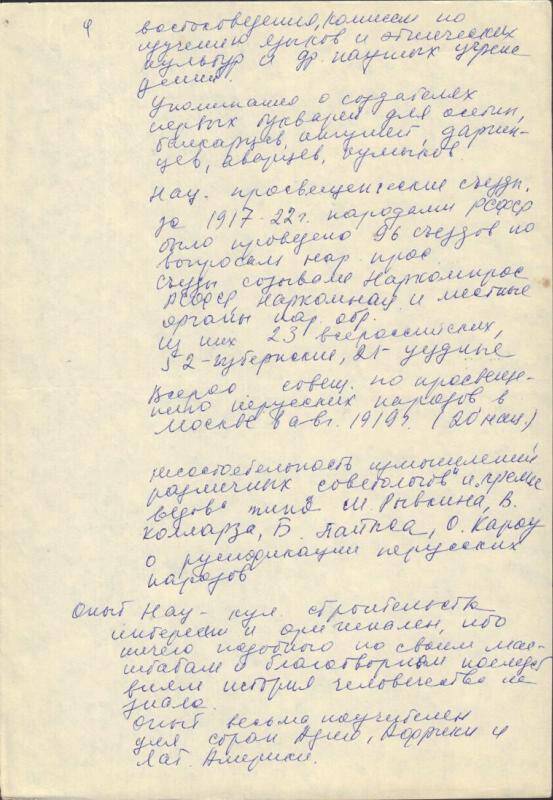 9
востоковедения, комиссии по
изучению языков и этнических
культур и др. научных учреж
дений.
Упоминание о создателях
первых букварей для осетин,
балкарцев, ингушей, даргин-
цев, аварцев, кумыков.
Нац. просвещенческие съезды.
за 1917-22 г. народами РСФСР
было проведено 96 съездов по
вопросам нар. прос.
Съезды созывали Наркомпрос
РСФСР, Наркомнац и местные
органы нар. обр.
Из них 23 всероссийских,
52-губернские, 21-уездные
Всерос. совещ. по просвеще-
нию нерусских народов в
Москве в авг. 1919 г. (20 нац.)
несостоятельность измышлений
различных советологов и
типа М. Рывкина, В.
Колларза, Б. О. Кароу
о русификации нерусских
народов
Опыт нац-кул. строительства
интересен и оригинален, ибо
ничего подобного по своим мас-
штабам и благотворным последст
виям история человечества не
знала.
Опыт весьма поучителен
для стран Азии, Африки и
Лат. Америки.